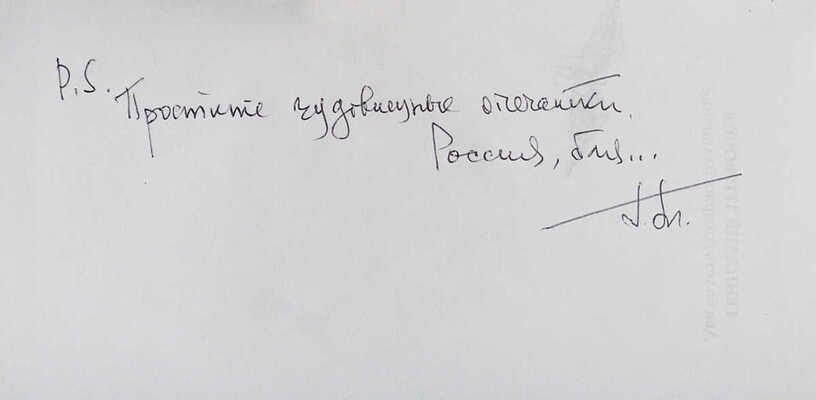 P.S.
Простите чудовищные опечатки.
Россия, бля...